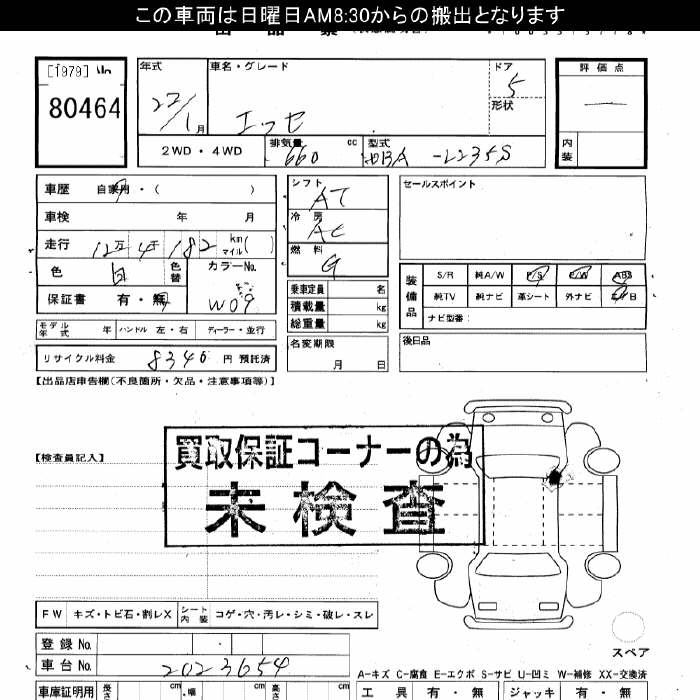 この車両は日曜日AM8:30からの搬出となります
[1979]
80464
年式
22/1月
車名・グレード
エッセ
ドア
5
形状
評価点
内装
2WD・4WD
排気量
660 cc
型式
DBA-L235S
車歴 自家用・( )
車検 年 月
走行 12万4千182 km マイル( )
色 白 色替
カラーNo.
W09
保証書 有・無
シフト
AT
冷房
AC
燃料
G
乗車定員 名
積載量 kg
総重量 kg
セールスポイント
装備品
S/R 純A/W P/S P/W ABS
純TV 純ナビ 革シート 外ナビ エアB
ナビ型番:
モデル年式 年 ハンドル 左・右 ディーラー・並行
名変期限
月 日
後日品
リサイクル料金 8340 円 預託済
【出品店申告欄(不良箇所・欠品・注意事項等)】
【検査員記入】
買取保証コーナーの為
未検査
FW キズ・トビ石・割レX シート内装 コゲ・穴・汚レ・シミ・破レ・スレ
スペア
登録No.
車台No. 2023654
A-キズ C-腐食 E-エクボ S-サビ U-凹ミ W-補修 XX-交換済
車庫証明用 長さ cm 幅 cm 高さ cm
工具 有・無 ジャッキ 有・無